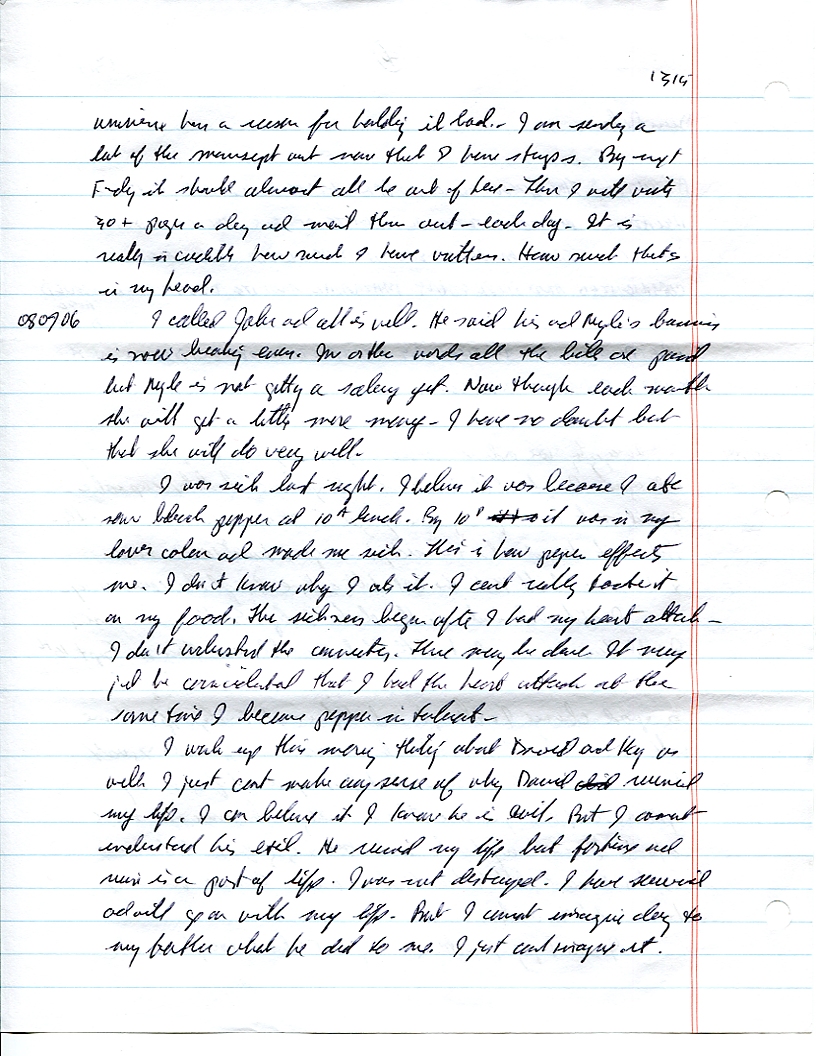 1315
universe has a reason for holding it back - I am sending a
lot of the manuscript out now that I have stamps. By next
Friday it should almost all be out of here - Then I will write
30+ pages a day and mail them out - each day - It is
really incredible how much I have written. How much that's
in my head.
080906 I called John and all is well. He said his and 's business
is now breaking even. In other words all the bills are paid
but is not getting a salary yet. Now though each month
she will get a little more money - I have no doubt but
that she will do very well.
I was sick last night. I believe it was because I ate
some black pepper at 10A lunch. By 10P it was in my
lower colon and made me sick. This is how pepper effects
me. I don't know why I ate it. I can't really taste it
on my food. The sickness began after I had my heart attack -
I don't understand the connection. There may be one. It may
just be coincidental that I had the heart attack at the
same time I became pepper intolerant -
I woke up this morning thinking about David and as
well I just cant make any sense of why David ruined
my life. I can believe it I know he is evil. But I cannot
understand his evil. He ruined my life but fortune and
ruin is a part of life. I was not destroyed. I have survived
and will go on with my life. But I cannot imagine doing to
my brother what he did to me. I just cant imagine it.